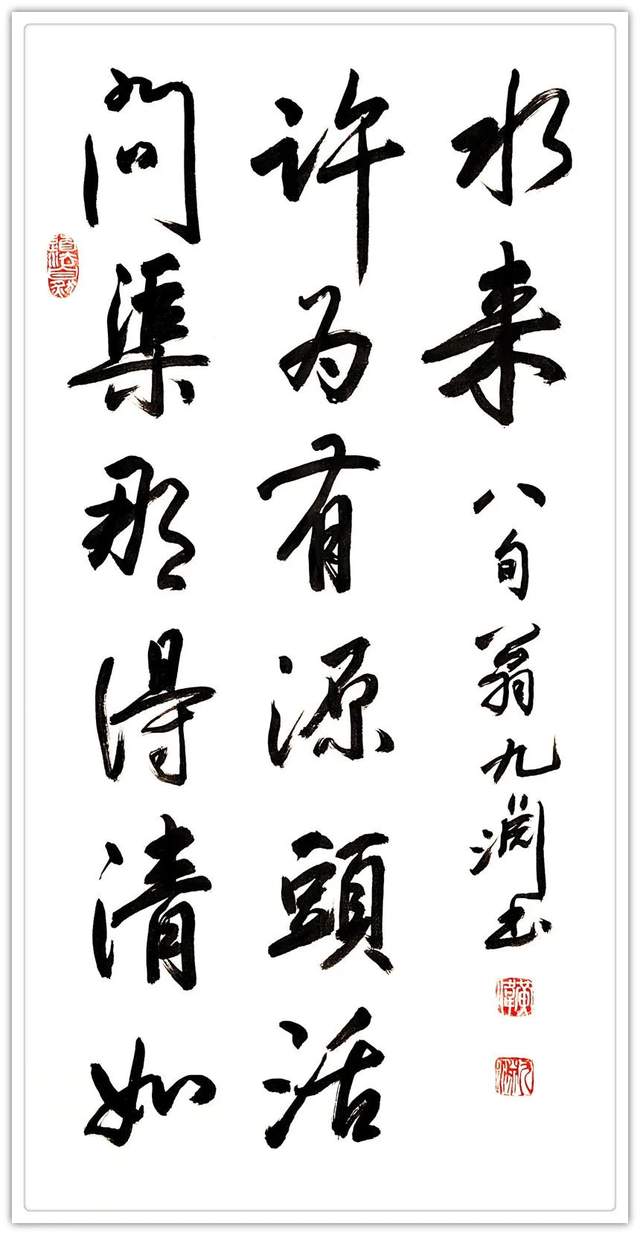 問渠那得清如
許为有源頭活
水来
八旬翁九渊书